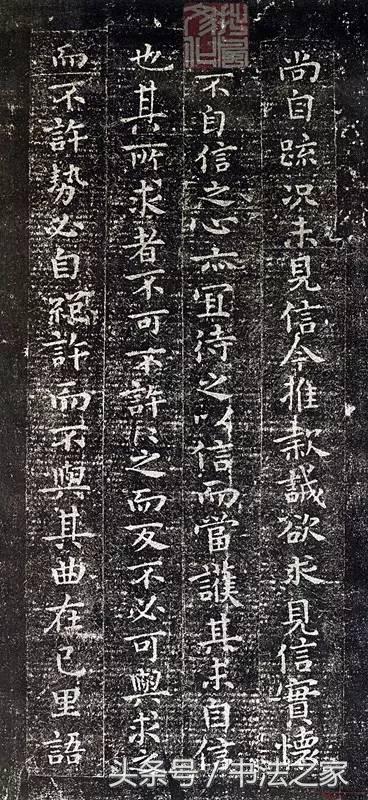 尚自疏况未見信今推款誠欲求見信實懷
不自信之心亦宜待之以信而當護其未自信
也其所求者不可不許〻之而反不必可與求之
而不許勢必自絕許而不與其曲在己里語
头条号 / 书法之家